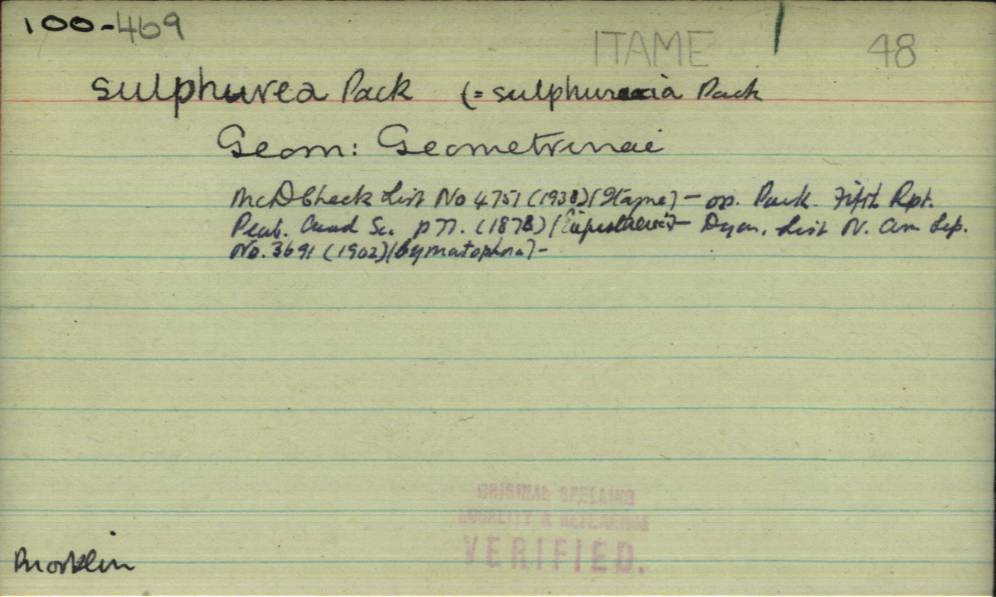 100-469
ITAME 48
sulphurea Pack (= sulphuraria Pack
Geom: Geometrinae
McD Check List No 4751 (1938) (Itame) - op. Pack. Fifth Rpt.
Peab. Acad Sc. p (1873) - Dyar. List N. Am Lep.
No. 3691 (1902) (Cymatophora) -
ORIGINAL SPELLING
LOCALITY & REFERENCE
VERIFIED.
Brooklin